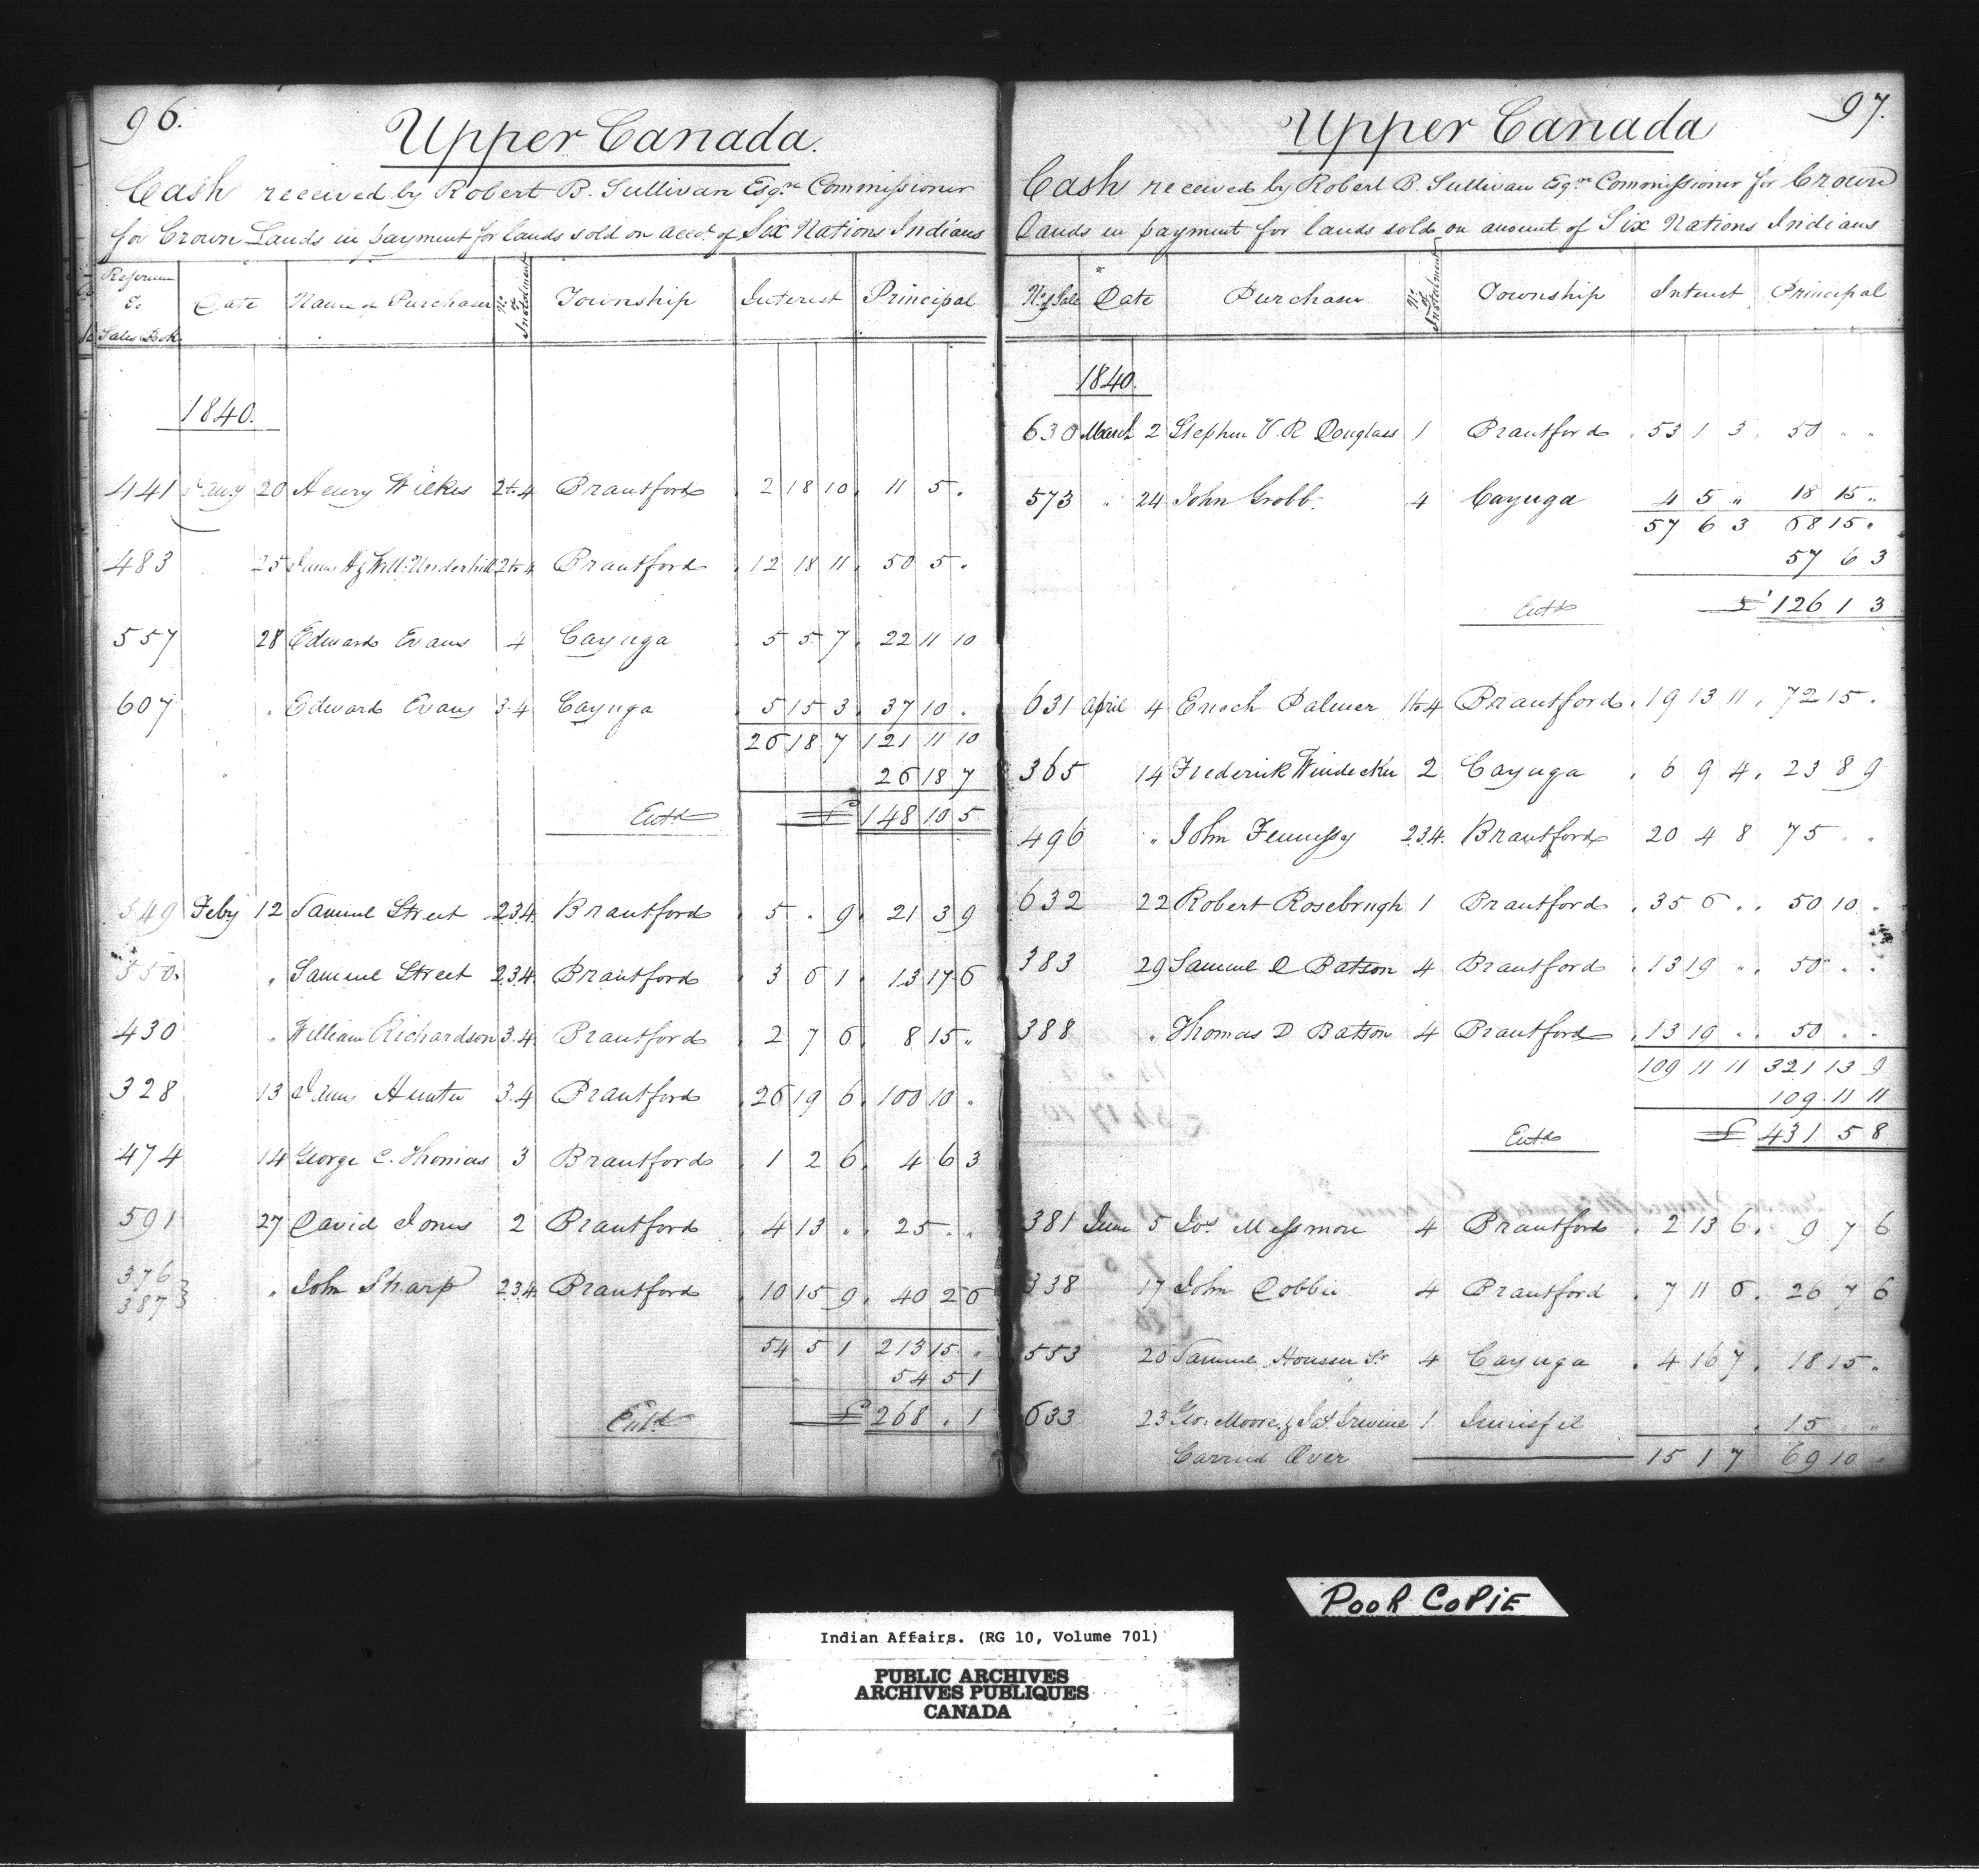 96.
Upper Canada.
Cash received by Robert B. Sullivan Esqre Commissioner
for Crown Lands in payment for lands sold on accot of Six Nations Indians
Reference to Sales Book Date Name of Purchaser No of Instalment Township Interest Principal
1840.
441 Jany 20 Henry Wilkes 2 to 4 Brantford . 2 18 10 . 11 5 .
483 25 James H & Will: Underhill 2 to 4 Brantford . 12 18 11 . 50 5 .
557 28 Edward Evans 4 Cayuga . 5 5 7 . 22 11 10
607 . Edward Evans 3.4 Cayuga . 5 15 3 . 37 10 .
26 18 7 121 11 10
26 18 7
Entd £ 148 10 5
549 Feby 12 Samuel Street 2.3.4. Brantford . 5 . 9 . 21 3 9
550. " Samuel Street 2.3.4. Brantford . 3 6 1 . 13 17 6
430 " William Richardson 3.4. Brantford . 2 7 6 . 8 15 "
328 13 James Hunter 3.4 Brantford . 26 19 6 . 100 10 "
474 14 George C. Thomas 3 Brantford . 1 2 6 . 4 6 3
591 27 David Jones 2 Brantford . 4 13 " . 25 " "
376 387 } " John Sharp 2.3.4. Brantford . 10 15 9 . 40 2 6
54 5 1 213 15 "
54 5 1
Entd £ 268 . 1
97.
Upper Canada
Cash received by Robert B. Sullivan Esqre Commissioner for Crown
Lands in payment for lands sold on amount of Six Nations Indians
No of Sale Date Purchaser No of Instalment Township Interest Principal
1840.
630 March 2 Stephen V. R Douglass 1 Brantford . 53 1 3 . 50 " "
573 " 24 John Grobb. 4 Cayuga 4 5 " 18 15 "
57 6 3 68 15 "
57 6 3
Entd £ 126 1 3
631 April 4 Enoch Palmer 1 to 4 Brantford . 19 13 11 . 72 15 .
365 14 Frederick Windecker 2 Cayuga . 6 9 4 . 23 8 9
496 " John Fennessy 2.3.4. Brantford 20 4 8 75 " "
632 22 Robert Rosebrugh 1 Brantford . 35 6 " . 50 10 "
383 29 Samuel D Batson 4 Brantford . 13 19 " . 50 " "
388 " Thomas D Batson 4 Brantford . 13 19 " . 50 " "
109 11 11 321 13 9
109 11 11
Entd £ 431 5 8
381 June 5 Jos Messmore 4 Brantford . 2 13 6 . 9 7 6
338 17 John Dobbie 4 Brantford . 7 11 6 . 26 7 6
553 20 Samuel Houser Sr 4 Cayuga . 4 16 7 . 18 15 "
633 23 Geo: Moore & Jas Irwine 1 Innisfil . 15 " "
Carried Over 15 1 7 69 10 "
POOR COPIE
Indian Affairs. (RG 10, Volume 701)
PUBLIC ARCHIVES
ARCHIVES PUBLIQUES
CANADA